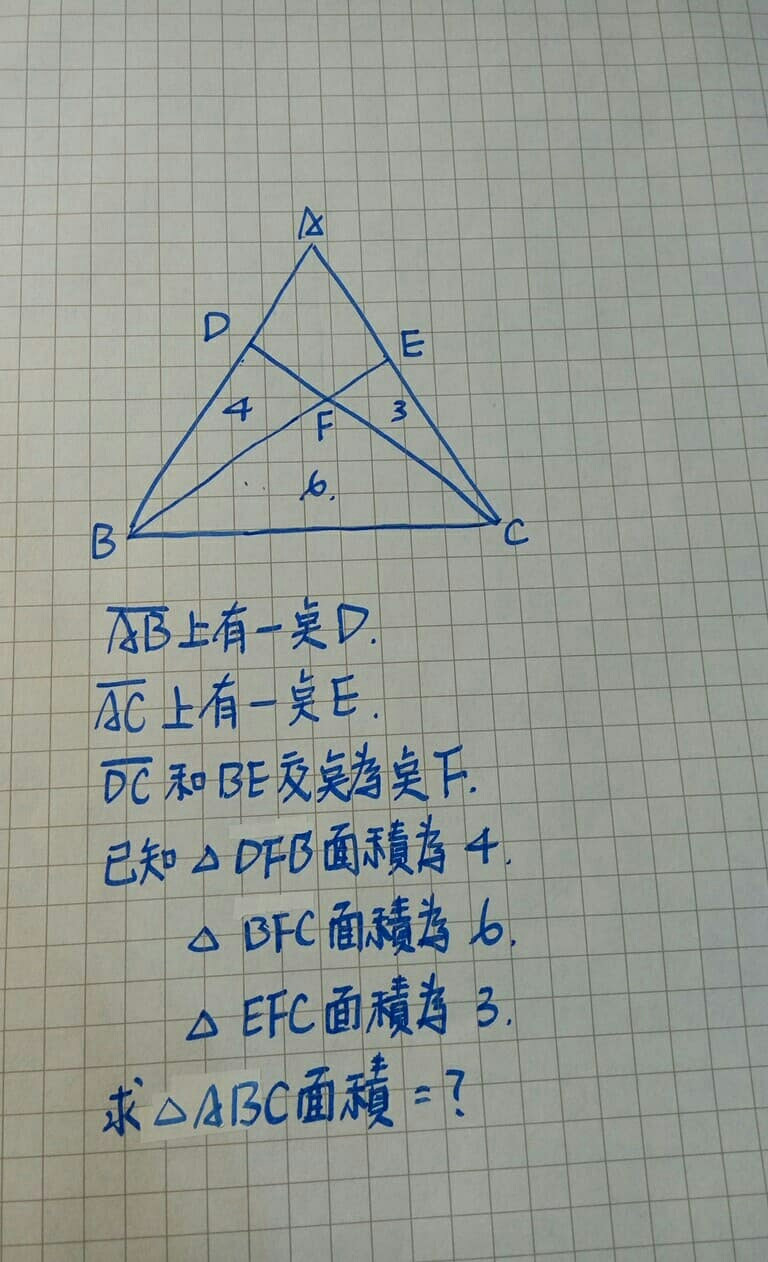 A
D
E
4
3
F
6.
B
C
AB上有一奌D.
AC上有一奌E.
DC和BE交奌為奌F.
已知△DFB面積為4.
△BFC面積為6.
△EFC面積為3.
求△ABC面積=?